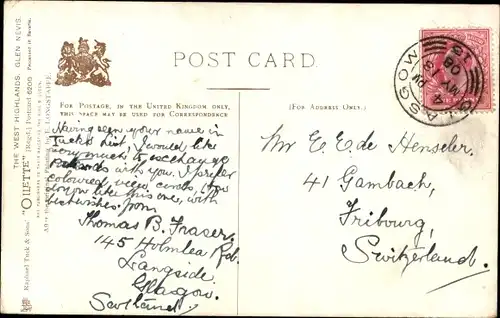 POST CARD.
THE WEST HIGHLANDS. GLEN NEVIS.
Raphael Tuck & Sons' "OILETTE" [Regd.] Postcard 6200
FOR POSTAGE, IN THE UNITED KINGDOM ONLY,
THIS SPACE MAY BE USED FOR CORRESPONDENCE
(FOR ADDRESS ONLY.)
Having seen your name in
Tuck's List, I would like
very much to exchange
cards with you. I prefer
coloured view cards,
like this one, with
best wishes from
Thomas B. Fraser,
145 Holmlea Rd.
Langside.
Glasgow.
Scotland.
GLASGOW
Mr E. E. de Henseler.
41 Gambach,
Fribourg,
Switzerland.